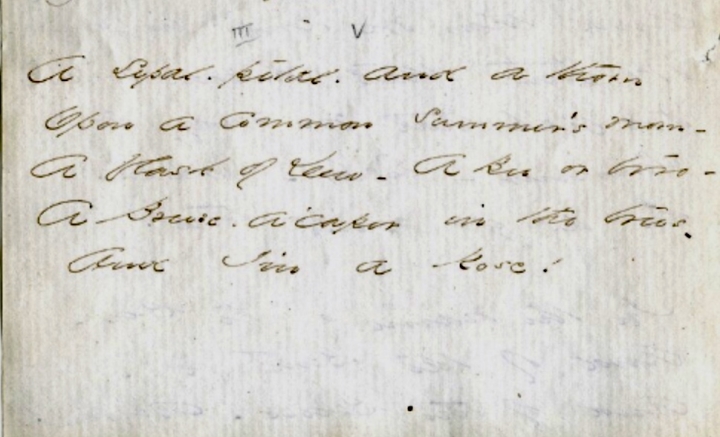 III - V
A Sepal. petal. and a thorn
Upon a common Summer's morn -
A flask of Dew - A Bee or two -
A Breeze. a'caper in the trees.
And I'm a Rose!